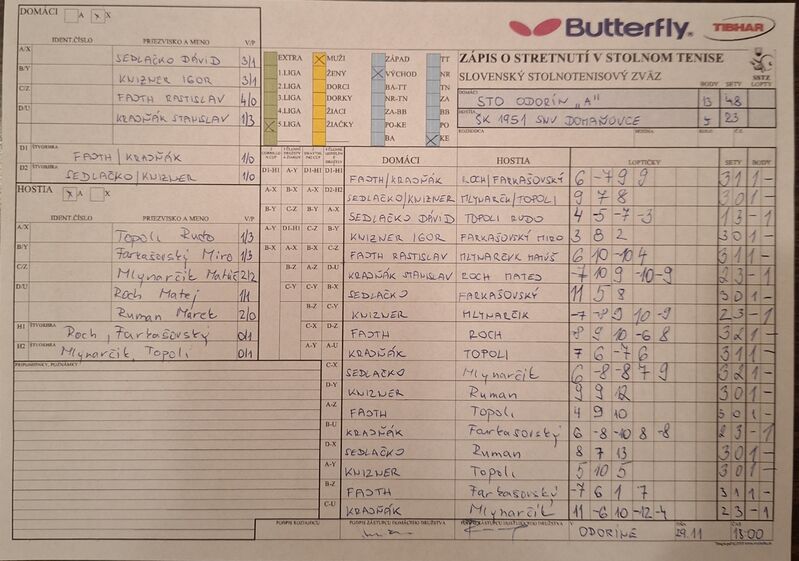 DOMÁCI A X
Butterfly. TIBHAR
IDENT.ČÍSLO PRIEZVISKO A MENO V/P
A/X SEDLAČKO DÁVID 3/1
B/Y KNIZNER IGOR 3/1
C/Z FAJTH RASTISLAV 4/0
D/U KRAJŇÁK STANISLAV 1/3
D1 ŠTVORHRA FAJTH/KRAJŇÁK 1/0
D2 ŠTVORHRA SEDLAČKO/KNIZNER 1/0
HOSTIA A X
IDENT.ČÍSLO PRIEZVISKO A MENO V/P
A/X Topoli Rudo 1/3
B/Y Farkašovský Miro 1/3
C/Z Mlynarčik Matúš 2/2
D/U Roch Matej 1/1
Ruman Marek 2/0
H1 ŠTVORHRA Roch, Farkašovský 0/1
H2 ŠTVORHRA Mlynarčik, Topoli 0/1
PRIPOMIENKY, POZNÁMKY
EXTRA MUŽI ZÁPAD TT
1.LIGA ŽENY VÝCHOD NR
2.LIGA DORCI BA-TT TN
3.LIGA DORKY NR-TN ZA
4.LIGA ŽIACI ZA-BB BB
5.LIGA ŽIAČKY PO-KE PO
BA KE
ZÁPIS O STRETNUTÍ V STOLNOM TENISE
SLOVENSKÝ STOLNOTENISOVÝ ZVÄZ
SSTZ
BODY SETY LOPTY
DOMÁCI STO ODORÍN „A" 13 48
HOSTIA ŠK 1951 SNV DOMAŇOVCE 5 23
DOMÁCI HOSTIA LOPTIČKY SETY BODY
D1-H1 A-Y A-X D1-H1 FAJTH/KRAJŇÁK ROCH/FARKAŠOVSKÝ 6 -7 9 9 3 1 1 -
A-X B-X A-X D2-H2 SEDLAČKO/KNIZNER MLYNARČIK/TOPOLI 9 7 8 3 0 1 -
B-Y C-Z B-Y A-X SEDLAČKO DÁVID TOPOLI RUDO 4 -5 -7 -3 1 3 - 1
A-Y D1-H1 C-X B-Y KNIZNER IGOR FARKAŠOVSKÝ MIRO 3 8 2 3 0 1 -
B-X A-X A-X C-Z FAJTH RASTISLAV MLYNARČIK MATÚŠ 6 10 -10 4 3 1 1 -
B-Z A-Z D-U KRAJŇÁK STANISLAV ROCH MATEJ -7 10 9 -10 -9 2 3 - 1
C-Y C-Y B-X SEDLAČKO FARKAŠOVSKÝ 11 5 8 3 0 1 -
B-Z C-Y KNIZNER MLYNARČIK -7 -8 9 10 -9 2 3 - 1
C-X D-Z FAJTH ROCH -8 9 10 -6 8 3 2 1 -
A-Y A-U KRAJŇÁK TOPOLI 7 6 -7 6 3 1 1 -
C-X SEDLAČKO Mlynarčik 6 -8 -8 7 9 3 2 1 -
D-Y KNIZNER Ruman 9 9 12 3 0 1 -
A-Z FAJTH Topoli 4 9 10 3 0 1 -
B-U KRAJŇÁK Farkašovský 6 -8 -10 8 -8 2 3 - 1
D-X SEDLAČKO Ruman 8 7 13 3 0 1 -
A-Y KNIZNER Topoli 5 10 5 3 0 1 -
B-Z FAJTH Farkašovský -7 6 1 7 3 1 1 -
C-U KRAJŇÁK Mlynarčik 11 -6 10 -12 -4 2 3 - 1
PODPIS ROZHODCU PODPIS ZÁSTUPCU DOMÁCEHO DRUŽSTVA V ODORÍNE DŇA 29.11 ČAS 18:00